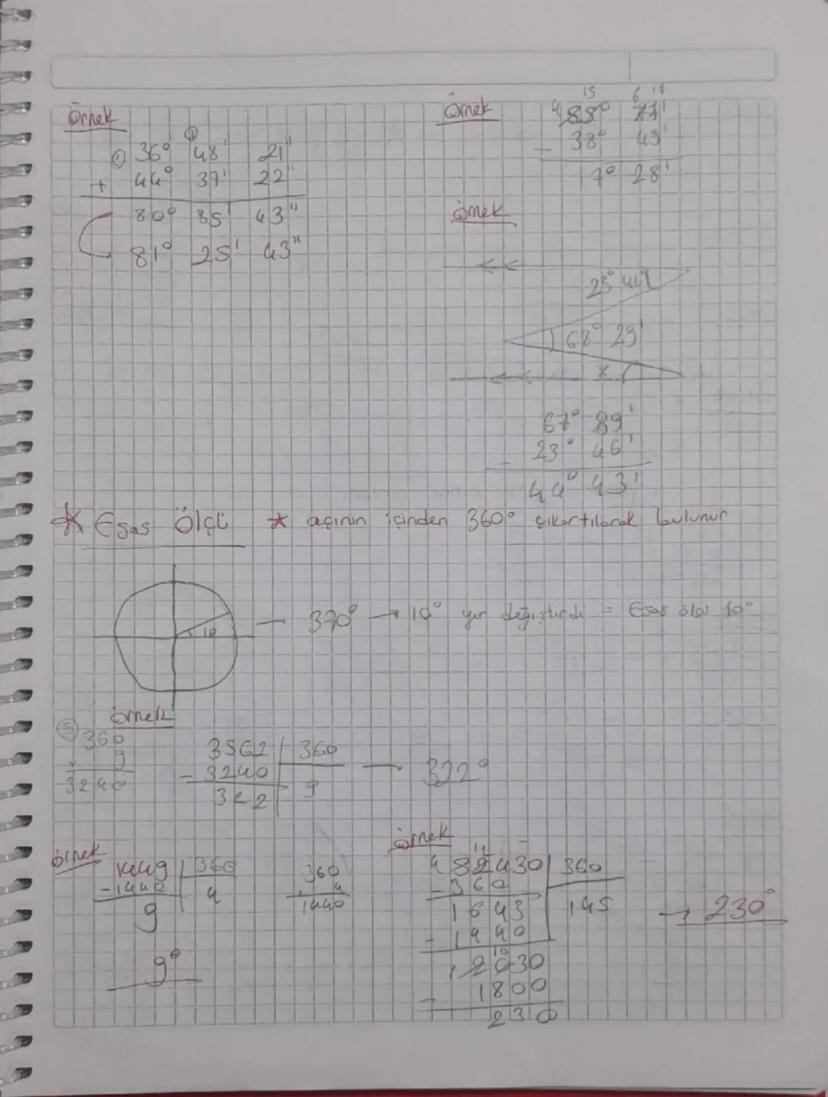 Örnek
36° 48' 21"
+ 44° 37' 22"
80° 85' 43"
81° 25' 43"
Örnek
- 38° 49'
7° 28'
Örnek
68° 29'
x
67° 89'
- 23° 46'
44° 43'
* Esas Ölçü * açının içinden 360° çıkartılarak bulunur
10 — 370° → 10° yer değiştirdi = Esas ölçü 10°
Örnek
360
x 9
3240
3562 | 360
- 3240 | 9
322
— 322°
Örnek
1449 | 360
- 1440 | 4
9
9°
360
4
1440
Örnek
52430 | 360
- 360 | 145
1643
- 1440
2030
- 1800
230
→ 230°